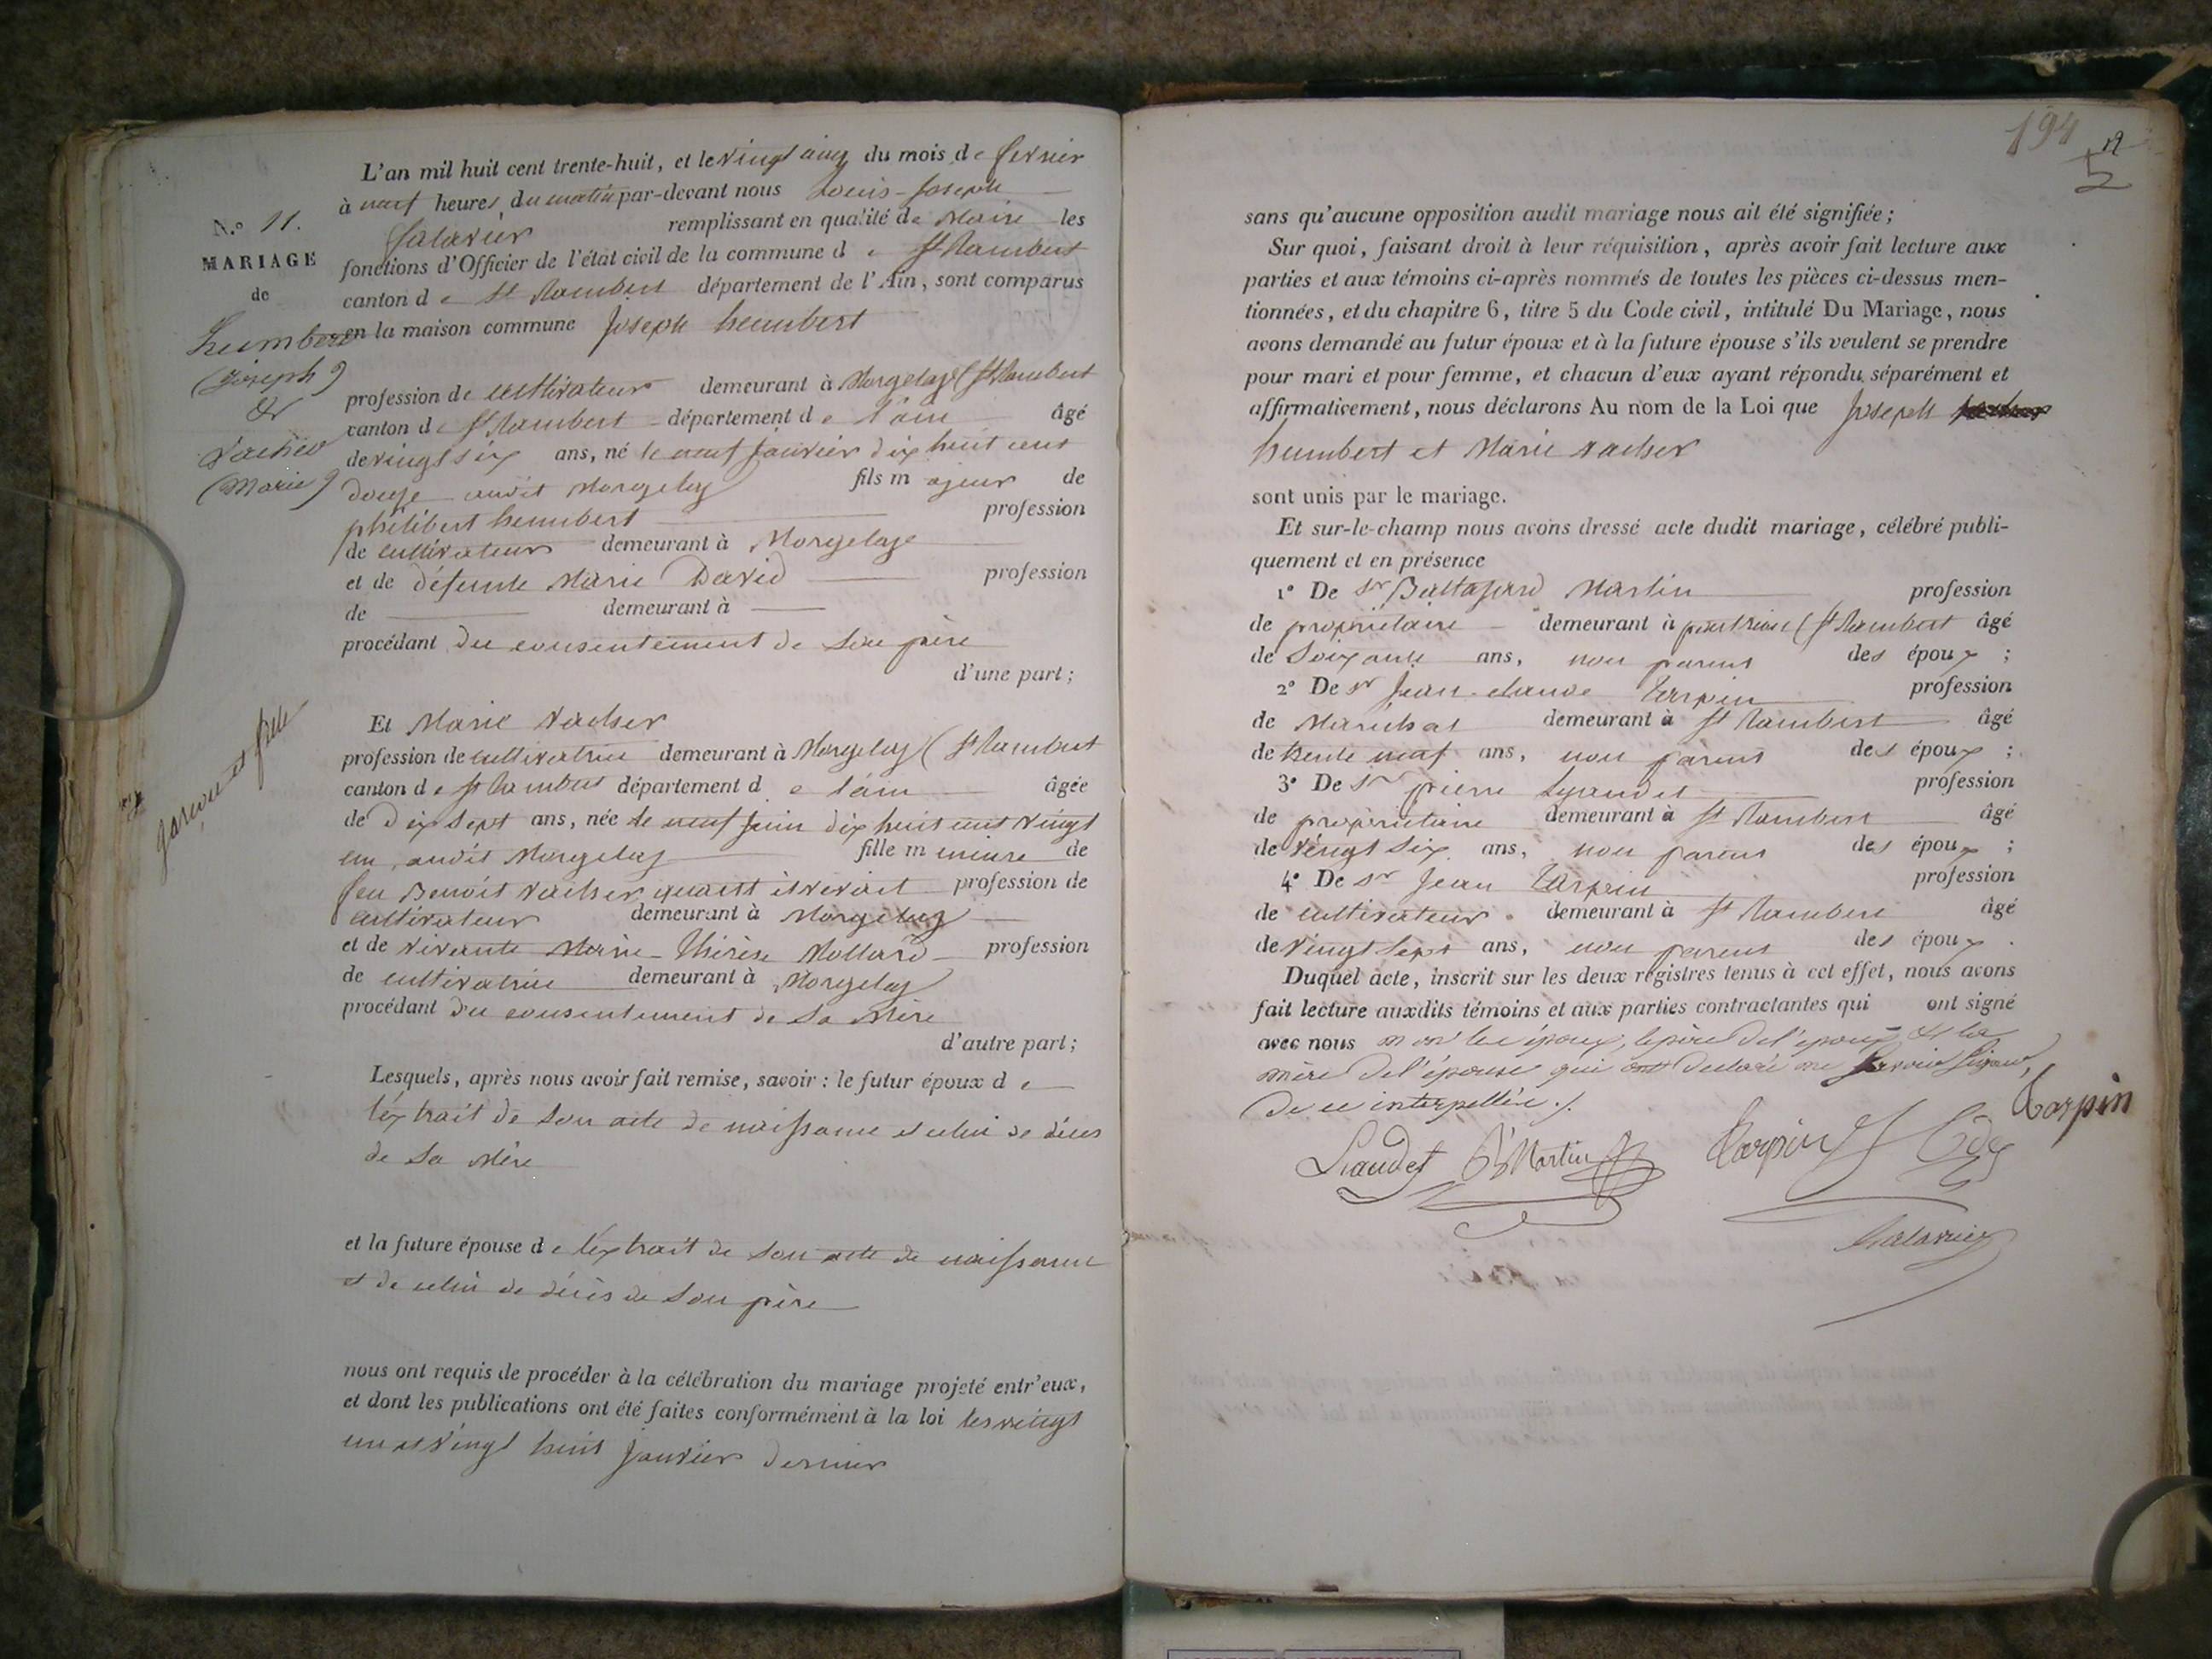 L'an mil huit cent trente-huit, et le vingt cinq du mois de fevrier
à neuf heures du matin par-devant nous Louis-Joseph
Salavuer remplissant en qualité de Maire les
fonctions d'Officier de l'état civil de la commune de St Rambert
canton de St Rambert département de l'Ain, sont comparus
en la maison commune Joseph humbert
N.º 11.
MARIAGE
de
humbert
(Joseph)
&
Vacher
(Marie)
profession de cultivateur demeurant à Morgelaz (St Rambert
canton de St Rambert département de l'ain âgé
de vingt six ans, né le neuf janvier dix huit cent
douze audit Morgelaz fils majeur de
philibert humbert profession
de cultivateur demeurant à Morgelaz
et de défunte Marie David profession
de demeurant à
procédant du consentement de son père
d'une part ;
garçon et fille
Et Marie Vacher
profession de cultivatrice demeurant à Morgelaz (St Rambert
canton de St Rambert département de l'ain âgée
de dix sept ans, née le neuf juin dix huit cent vingt
un, audit Morgelaz fille mineure de
feu Benoit Vacher quand il vivait profession de
cultivateur demeurant à Morgelaz
et de vivante Marie-Thérèse Mollard profession
de cultivatrice demeurant à Morgelaz
procédant du consentement de sa Mère
d'autre part ;
Lesquels, après nous avoir fait remise, savoir : le futur époux de
l'extrait de son acte de naissance et celui de décès
de sa Mère
et la future épouse de l'extrait de son acte de naissance
et de celui de décès de son père
nous ont requis de procéder à la célébration du mariage projeté entr'eux,
et dont les publications ont été faites conformément à la loi les vingt
un et vingt huit janvier dernier
194
sans qu'aucune opposition audit mariage nous ait été signifiée ;
Sur quoi, faisant droit à leur réquisition, après avoir fait lecture aux
parties et aux témoins ci-après nommés de toutes les pièces ci-dessus men-
tionnées, et du chapitre 6, titre 5 du Code civil, intitulé Du Mariage, nous
avons demandé au futur époux et à la future épouse s'ils veulent se prendre
pour mari et pour femme, et chacun d'eux ayant répondu séparément et
affirmativement, nous déclarons Au nom de la Loi que Joseph
humbert et Marie Vacher
sont unis par le mariage.
Et sur-le-champ nous avons dressé acte dudit mariage, célébré publi-
quement et en présence
1º De Sr Baltazard Martin profession
de propriétaire demeurant à (St Rambert âgé
de soixante ans, non parent des époux ;
2º De Sr Jean-claude Tarpin profession
de Maréchal demeurant à St Rambert âgé
de trente neuf ans, non parent des époux ;
3º De Sr pierre Lyaudet profession
de propriétaire demeurant à St Rambert âgé
de vingt six ans, non parent des époux ;
4º De Sr Jean Tarpin profession
de cultivateur demeurant à St Rambert âgé
de vingt sept ans, non parent des époux.
Duquel acte, inscrit sur les deux registres tenus à cet effet, nous avons
fait lecture auxdits témoins et aux parties contractantes qui ont signé
avec nous non les époux, le père de l'époux et la
mère de l'épouse qui ont déclaré ne savoir signer,
de ce interpellée ./.
Tarpin
Liaudet B Martin Tarpin
Salavuer